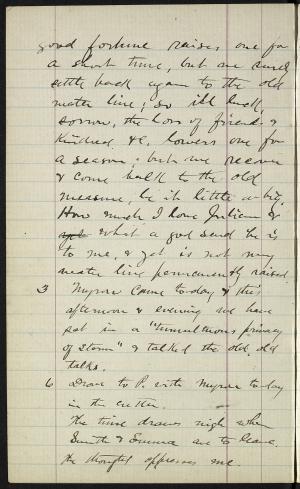 good fortune raises one for
a short time, but one surely
settle back again to the old
water line; so ill luck,
sorrow, the loss of friends &
kindred &c, lowers one for
a season; but we recover
& come back to the old
measure, be it little or big.
How much I love Julian &
what a god send he is
to me, & yet is not my
water line permanently raised.
3 Myron came to-day & this
afternoon & evening we have
sat in a "tumultuous privacy
of storm" & talked the old, old
talks.
6 Drove to P. with Myron to-day
in the cutter.
The time draws nigh when
Smith & Emma are to leave.
the thought oppresses me.